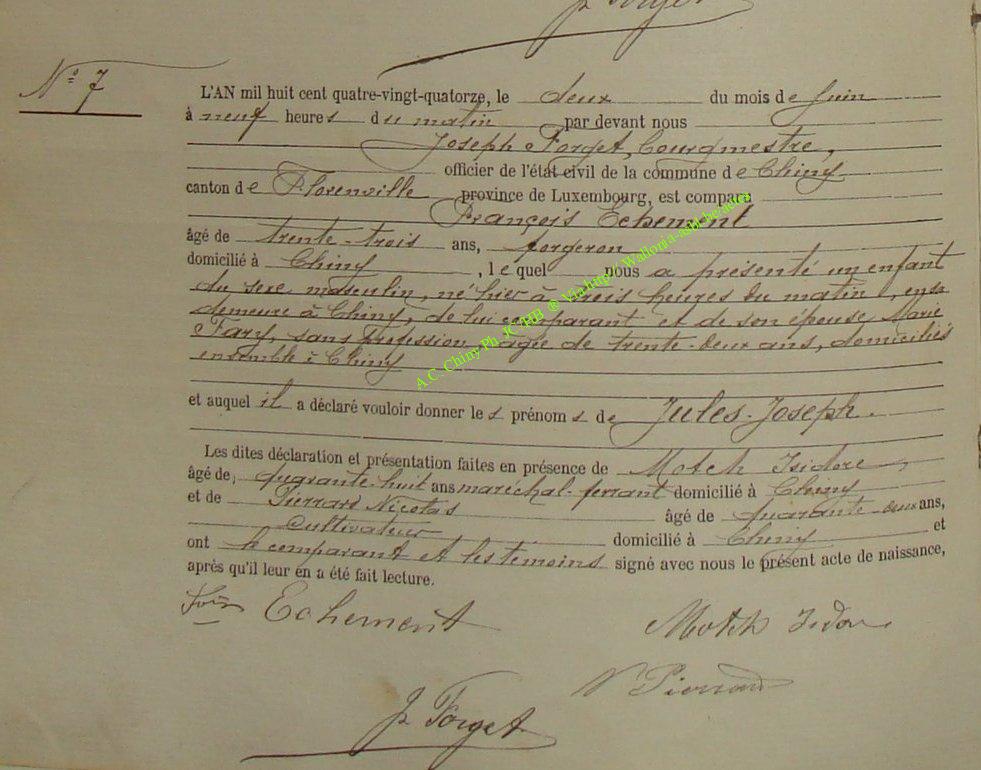 J. Forget
N° 7
L'AN mil huit cent quatre-vingt-quatorze, le deux du mois de Juin
à neuf heures du matin par devant nous
Joseph Forget, bourgmestre,
officier de l'état civil de la commune de Chiny
canton de Florenville province de Luxembourg, est comparu
François Echement
âgé de trente-trois ans, forgeron
domicilié à Chiny, lequel nous a présenté un enfant
du sexe masculin, né hier à trois heures du matin, en sa
demeure à Chiny, de lui comparant et de son épouse Marie
Fary, sans profession, agée de trente-deux ans, domiciliés
ensemble à Chiny
et auquel il a déclaré vouloir donner les prénoms de Jules-Joseph.
Les dites déclaration et présentation faites en présence de Motch Isidore,
âgé de, quarante-huit ans maréchal-ferrant domicilié à Chiny
et de Pierrard Nicolas âgé de quarante-deux ans,
Cultivateur domicilié à Chiny et
ont le comparant et les témoins signé avec nous le présent acte de naissance,
après qu'il leur en a été fait lecture.
Echement
Motch Isidore
N Pierrard
J. Forget
A.C. Chiny Ph. JC/HB ® Via http://Wallonia-asbl-be-actes